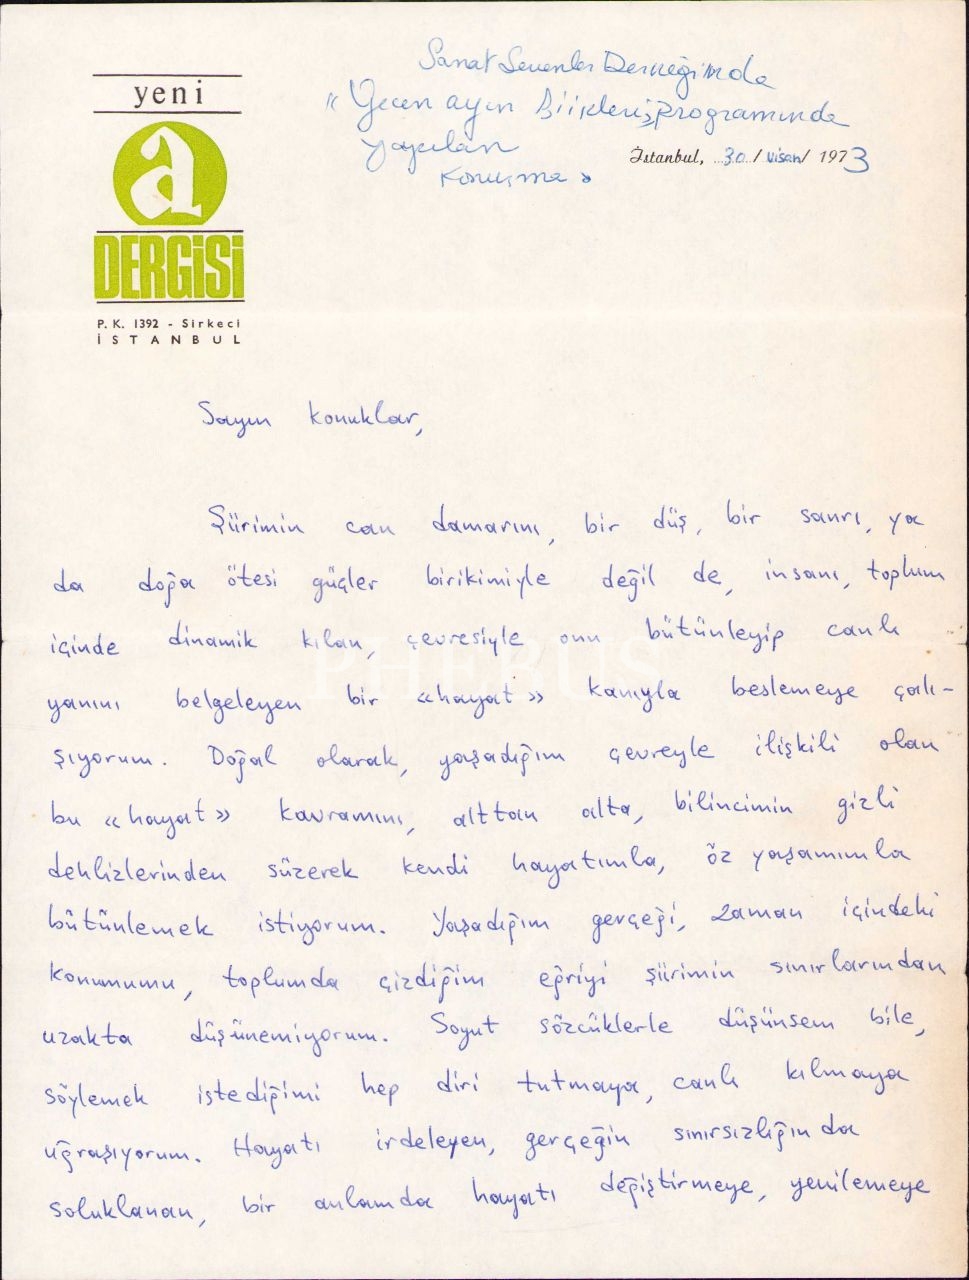 yeni
a
DERGİSİ
P. K. 1392 - Sirkeci
İSTANBUL
Sanat Sevenler Derneğinde
« Geçen ayın şiirleri » programında
yapılan
konuşma »
İstanbul, 30 / Nisan / 1973
Sayın konuklar,
Şiirimin can damarını, bir düş, bir sanrı, ya
da doğa ötesi güçler birikimiyle değil de, insanı, toplum
içinde dinamik kılan, çevresiyle onu bütünleyip canlı
yanını belgeleyen bir «hayat» kanıyla beslemeye çalı-
şıyorum. Doğal olarak, yaşadığım çevreyle ilişkili olan
bu «hayat» kavramını, alttan alta, bilincimin gizli
dehlizlerinden süzerek kendi hayatımla, öz yaşamımla
bütünlemek istiyorum. Yaşadığım gerçeği, zaman içindeki
konumumu, toplumda çizdiğim eğriyi şiirimin sınırlarından
uzakta düşünemiyorum. Soyut sözcüklerle düşünsem bile,
söylemek istediğimi hep diri tutmaya, canlı kılmaya
uğraşıyorum. Hayatı irdeleyen, gerçeğin sınırsızlığında
soluklanan, bir anlamda hayatı değiştirmeye, yenilemeye
PHEBUS